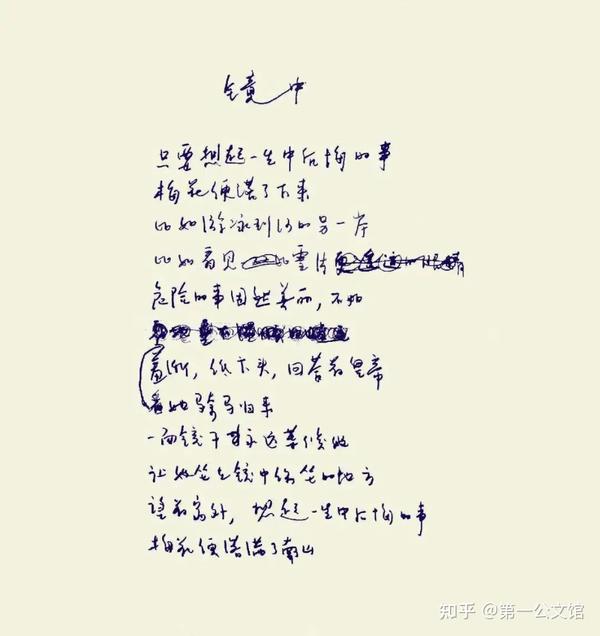 镜中
只要想起一生中后悔的事
梅花便落了下来
比如游泳到河的另一岸
比如看见雪片
危险的事固然美丽，不如
羞惭，低下头，回答着皇帝
看她骑马归来
一面镜子永远等候她
让她坐镜中坐的地方
望着窗外，想起一生中后悔的事
梅花便落满了南山
知乎 @第一公文馆